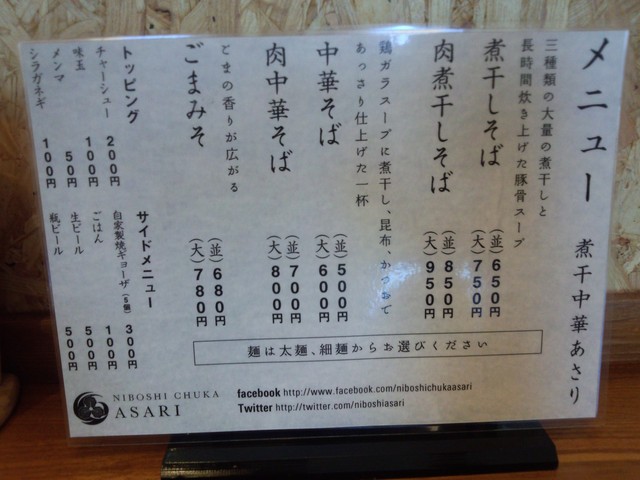 メニュー 煮干中華あさり
三種類の大量の煮干しと
長時間炊き上げた豚骨スープ
煮干しそば (並)650円
(大)750円
肉煮干しそば (並)850円
(大)950円
鶏ガラスープに煮干し、昆布、かつおで
あっさり仕上げた一杯
中華そば (並)500円
(大)600円
肉中華そば (並)700円
(大)800円
ごまの香りが広がる
ごまみそ (並)680円
(大)780円
麺は太麺、細麺からお選びください
トッピング
チャーシュー 200円
味玉 100円
メンマ 50円
シラガネギ 100円
サイドメニュー
自家製焼ギョーザ(5個) 300円
ごはん 100円
生ビール 500円
瓶ビール 500円
NIBOSHI CHUKA
ASARI
facebook http://www.facebook.com/niboshichukaasari
Twitter http://twitter.com/niboshiasari